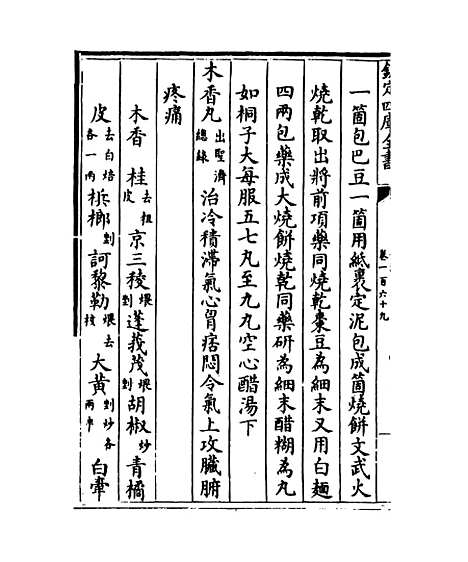 欽定四庫全書
卷一百六十九
一箇包巴豆一箇用紙裹定泥包成箇燒餅文武火
燒乾取出將前項藥同燒乾棗豆為細末又用白麵
四兩包藥成大燒餅燒乾同藥研為細末醋糊為丸
如桐子大每服五七丸至九丸空心醋湯下
木香丸出聖濟總錄治冷積滯氣心胷痞悶令氣上攻臟腑
疼痛
木香 桂去粗皮 京三稜煨剉 蓬莪茂煨剉 胡椒炒 青橘
皮去白焙各一兩 檳榔剉 訶黎勒煨去核 大黄剉炒各兩半 白牽